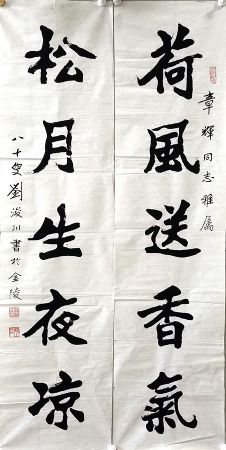 荷風送香氣
章輝同志雅属
松月生夜凉
八十叟劉浚川書於金陵